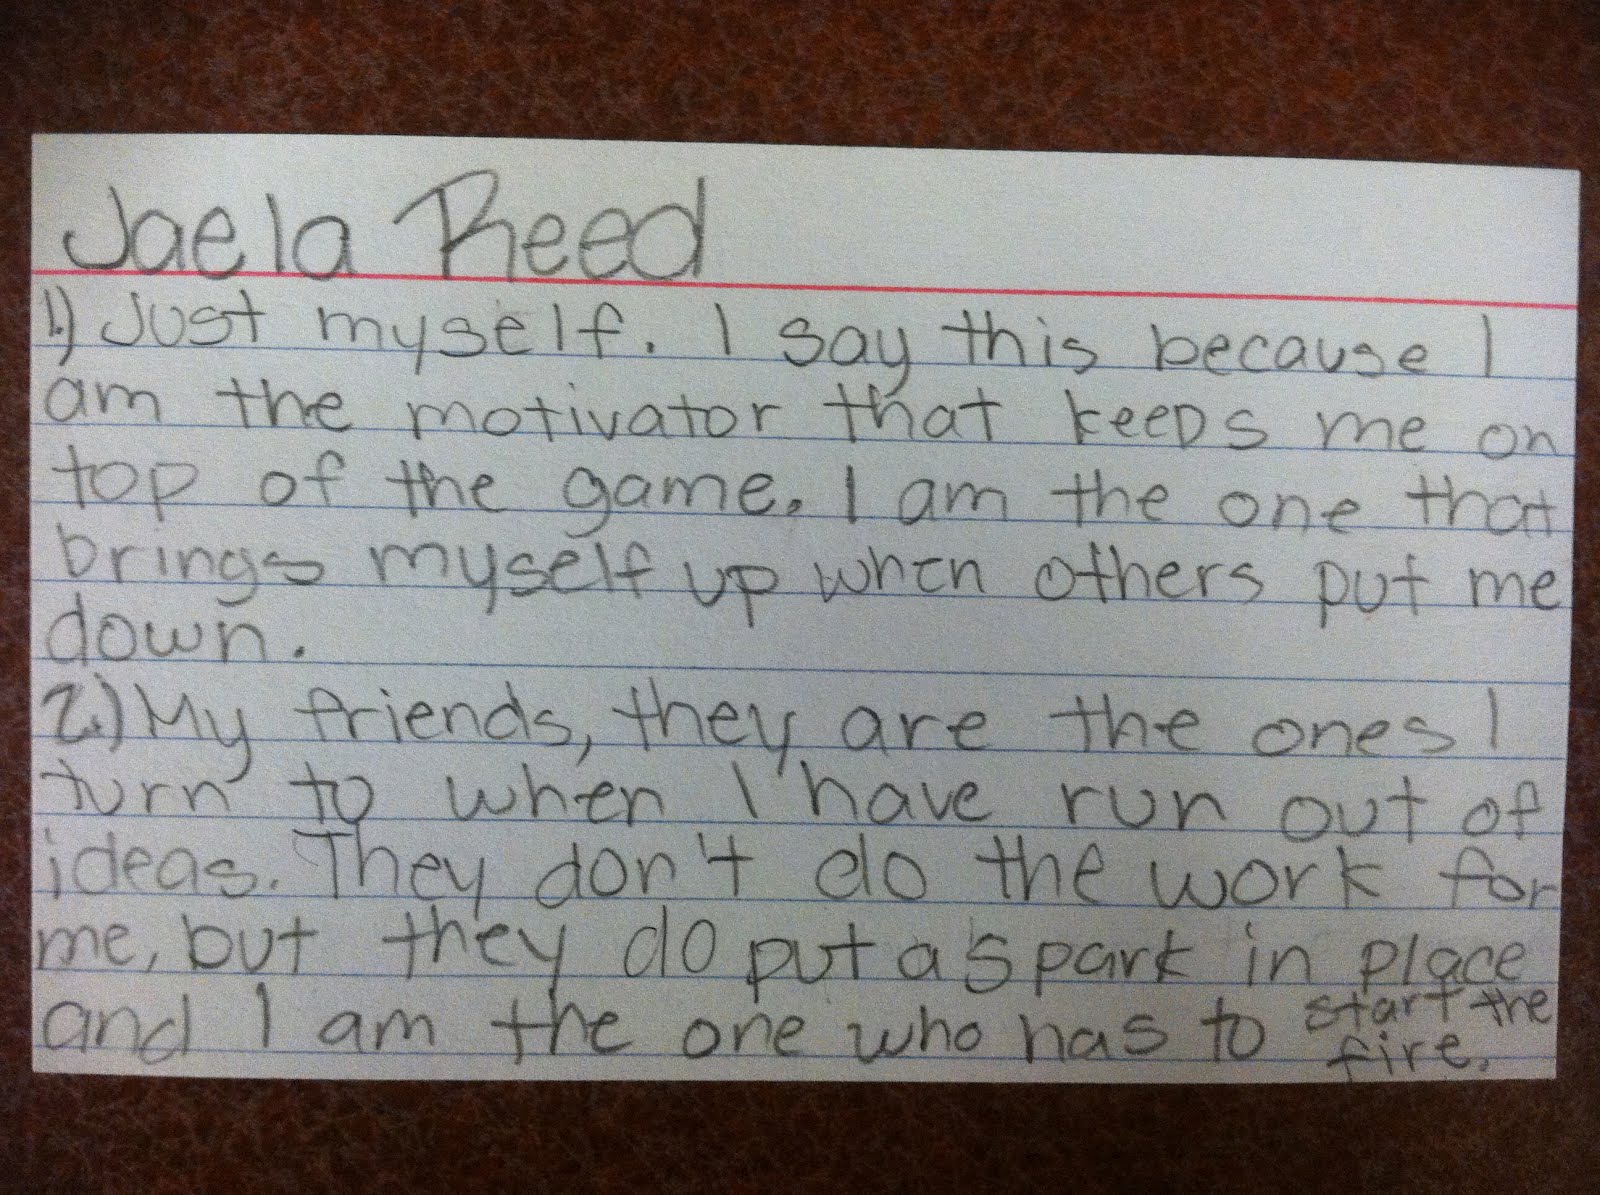 Jaela Reed
1.) Just myself. I say this because I
am the motivator that keeps me on
top of the game. I am the one that
brings myself up when others put me
down.
2.) My friends, they are the ones I
turn to when I have run out of
ideas. They don't do the work for
me, but they do put a spark in place
and I am the one who has to start the
fire.